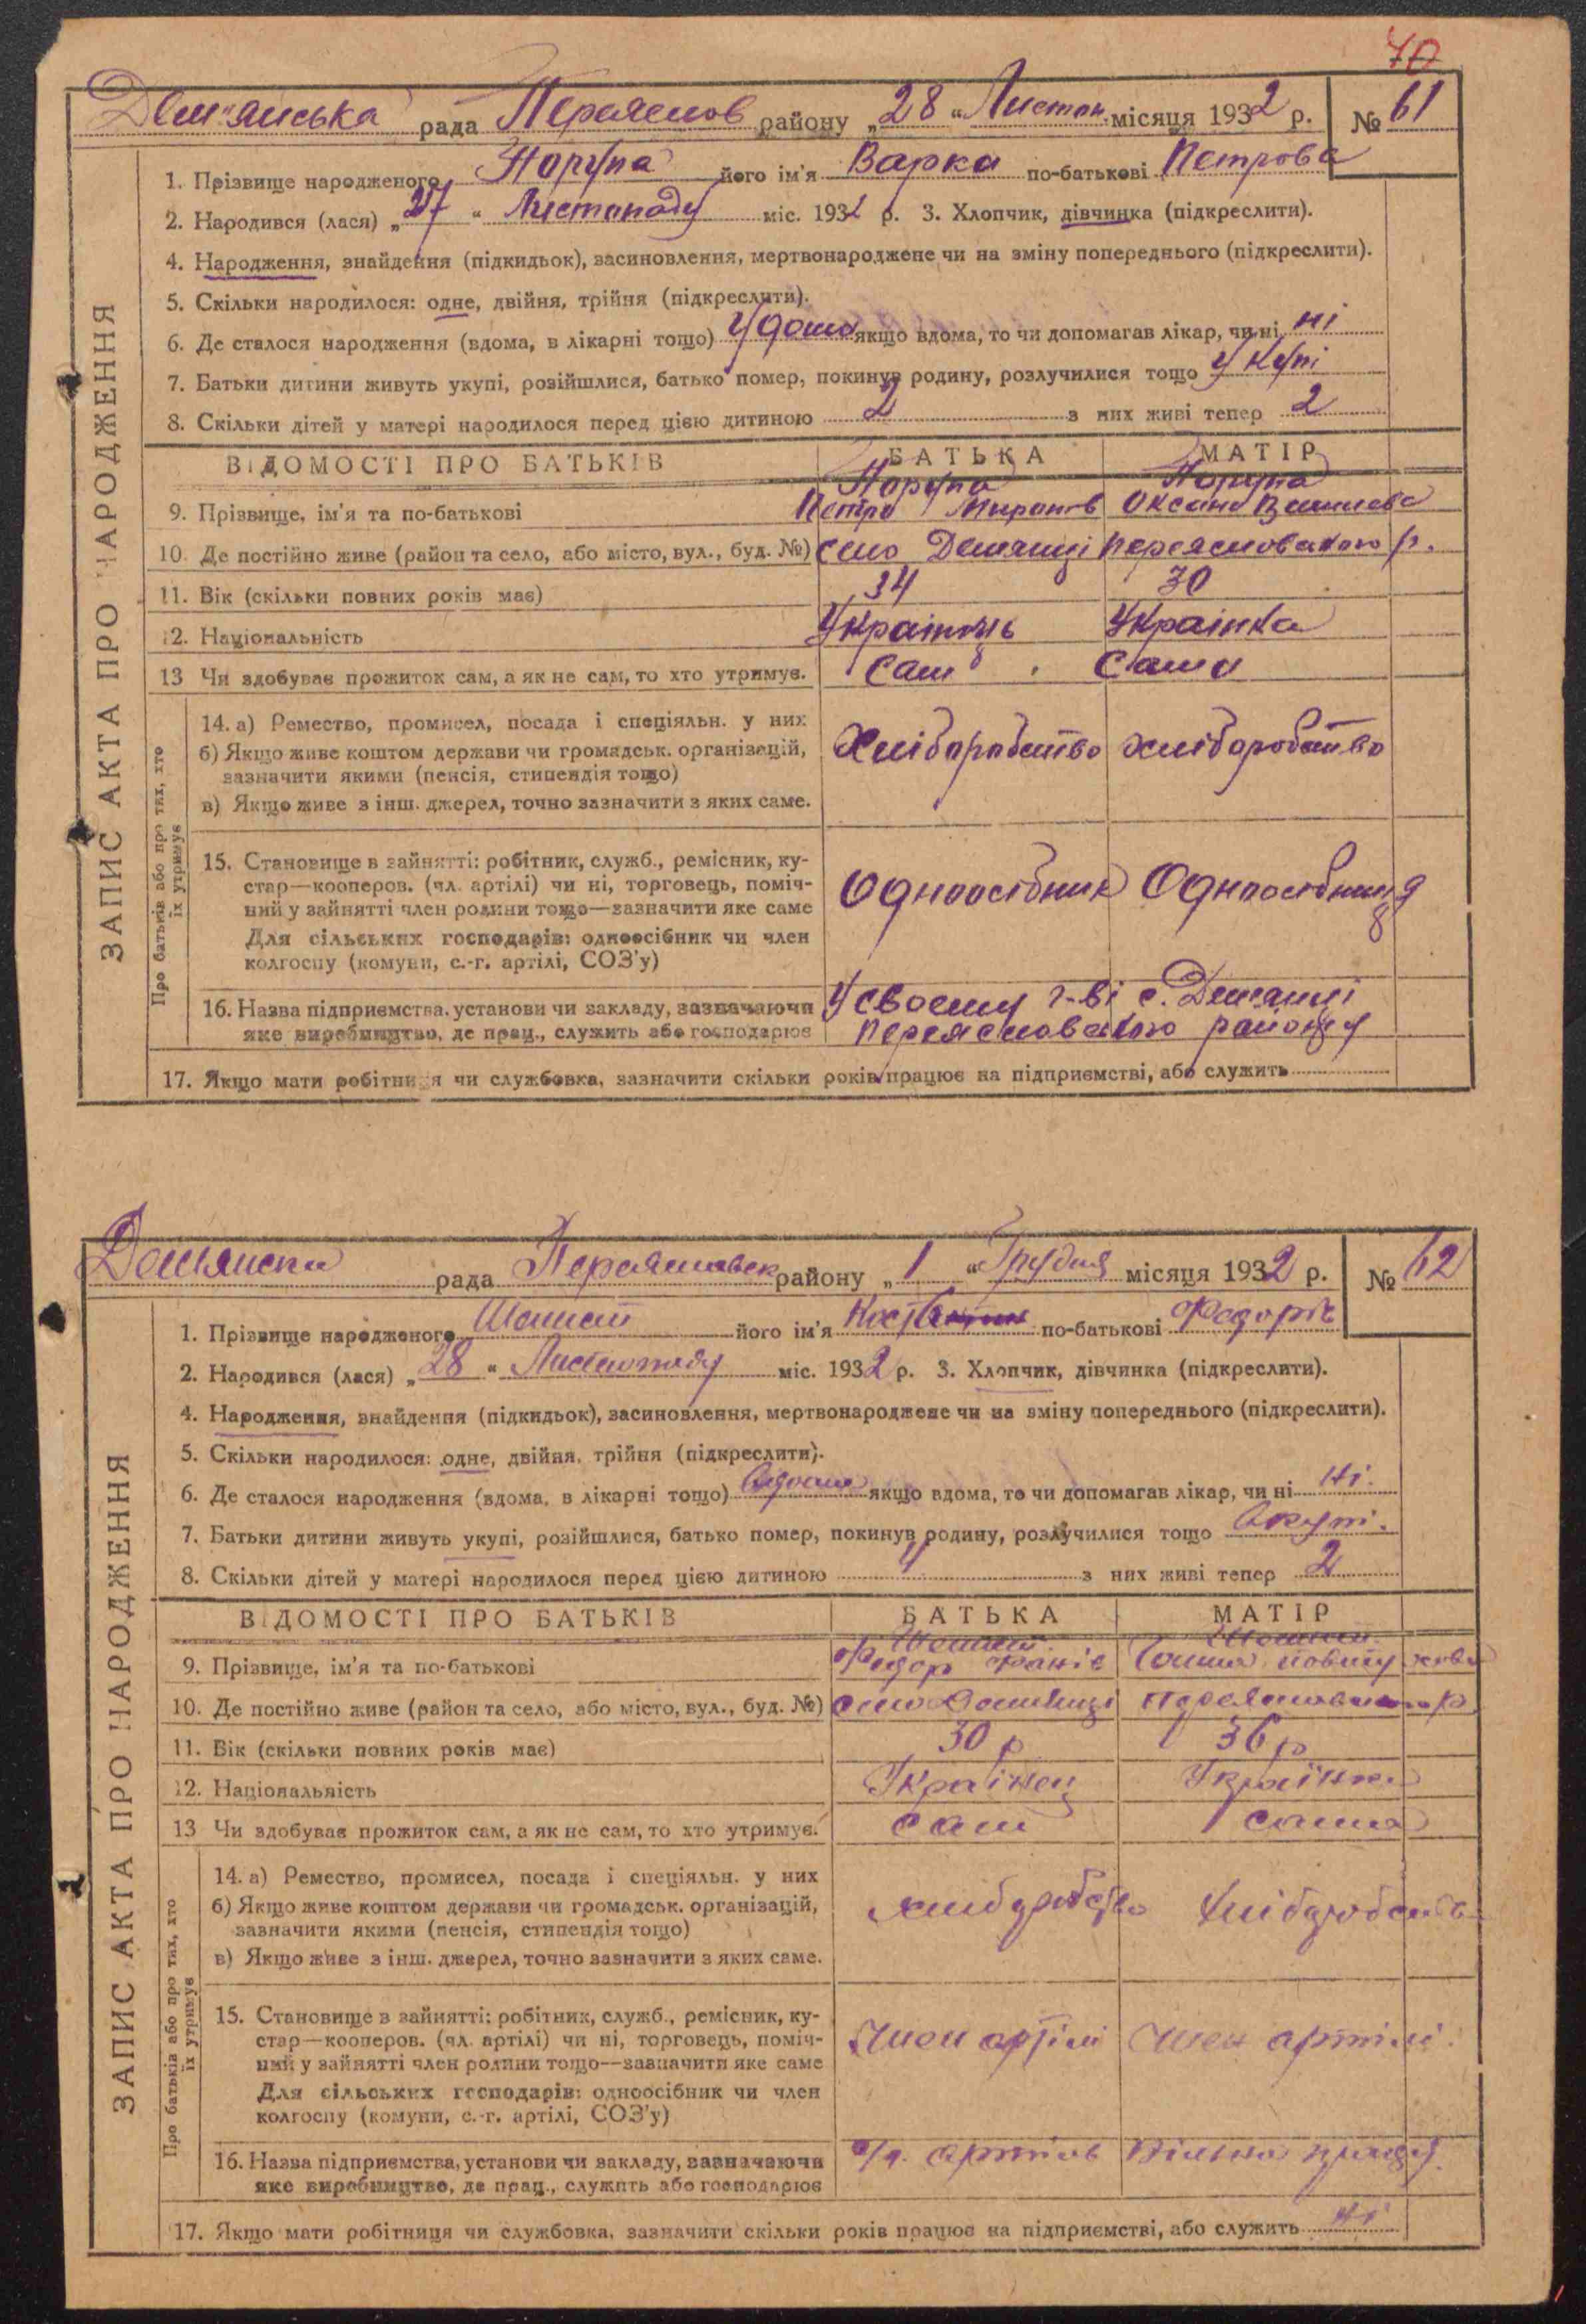 70
Дем'янська рада Переяслов району „28“ Листоп. місяця 1932 р. № 61
ЗАПИС АКТА ПРО НАРОДЖЕННЯ
1. Прізвище народженого його ім'я Варка по-батькові Петрова
2. Народився (лася) „27“ Листопаду міс. 1932 р. 3. Хлопчик, дівчинка (підкреслити).
4. Народження, знайдення (підкидьок), засиновлення, мертвонароджене чи на зміну попереднього (підкреслити).
5. Скільки народилося: одне, двійня, трійня (підкреслити).
6. Де сталося народження (вдома, в лікарні тощо) Удома якщо вдома, то чи допомагав лікар, чи ні ні
7. Батьки дитини живуть укупі, розійшлися, батько помер, покинув родину, розлучилися тощо Укупі
8. Скільки дітей у матері народилося перед цією дитиною 2 з них живі тепер 2
ВІДОМОСТІ ПРО БАТЬКІВ БАТЬКА МАТІР
9. Прізвище, ім'я та по-батькові Петро Миронів Оксана
10. Де постійно живе (район та село, або місто, вул., буд. №) село Демянці Переясловského р.
11. Вік (скільки повних років має) 34 30
12. Національність Українець Українка
13 Чи здобуває прожиток сам, а як не сам, то хто утримує. Сам Сама
Про батьків або про тих, хто їх утримує
14. а) Ремество, промисел, посада і спеціяльн. у них
б) Якщо живе коштом держави чи громадськ. організацій,
зазначити якими (пенсія, стипендія тощо)
в) Якщо живе з інш. джерел, точно зазначити з яких саме.
Хліборобство хліборобство
15. Становище в зайнятті: робітник, служб., ремісник, ку-
стар—кооперов. (чл. артілі) чи ні, торговець, поміч-
ний у зайнятті член родини тощо—зазначити яке саме
Для сільських господарів: одноосібник чи член
колгоспу (комуни, с.-г. артілі, СОЗ'у)
Одноосібник Одноосібниця
16. Назва підприємства, установи чи закладу, зазначаючи У своєму г-ві с. Демянці
яке виробництво, де прац., служить або господарює району
17. Якщо мати робітниця чи службовка, зазначити скільки років працює на підприємстві, або служить
рада району „1“ Грудня місяця 1932 р. № 62
ЗАПИС АКТА ПРО НАРОДЖЕННЯ
1. Прізвище народженого його ім'я по-батькові Федорів
2. Народився (лася) „28“ Листопаду міс. 1932 р. 3. Хлопчик, дівчинка (підкреслити).
4. Народження, знайдення (підкидьок), засиновлення, мертвонароджене чи на зміну попереднього (підкреслити).
5. Скільки народилося: одне, двійня, трійня (підкреслити).
6. Де сталося народження (вдома, в лікарні тощо) Вдома якщо вдома, то чи допомагав лікар, чи ні Ні.
7. Батьки дитини живуть укупі, розійшлися, батько помер, покинув родину, розлучилися тощо Вкупі.
8. Скільки дітей у матері народилося перед цією дитиною 4 з них живі тепер 2
ВІДОМОСТІ ПРО БАТЬКІВ БАТЬКА МАТІР
9. Прізвище, ім'я та по-батькові Федор
10. Де постійно живе (район та село, або місто, вул., буд. №) село р
11. Вік (скільки повних років має) 30 р 36 р
12. Національність Українец Українка
13 Чи здобуває прожиток сам, а як не сам, то хто утримує. сам сама
Про батьків або про тих, хто їх утримує
14. а) Ремество, промисел, посада і спеціяльн. у них
б) Якщо живе коштом держави чи громадськ. організацій,
зазначити якими (пенсія, стипендія тощо)
в) Якщо живе з інш. джерел, точно зазначити з яких саме.
15. Становище в зайнятті: робітник, служб., ремісник, ку-
стар—кооперов. (чл. артілі) чи ні, торговець, поміч-
ний у зайнятті член родини тощо—зазначити яке саме
Для сільських господарів: одноосібник чи член
колгоспу (комуни, с.-г. артілі, СОЗ'у)
Член артілі Член артілі
16. Назва підприємства, установи чи закладу, зазначаючи артіль
яке виробництво, де прац., служить або господарює
17. Якщо мати робітниця чи службовка, зазначити скільки років працює на підприємстві, або служить ні